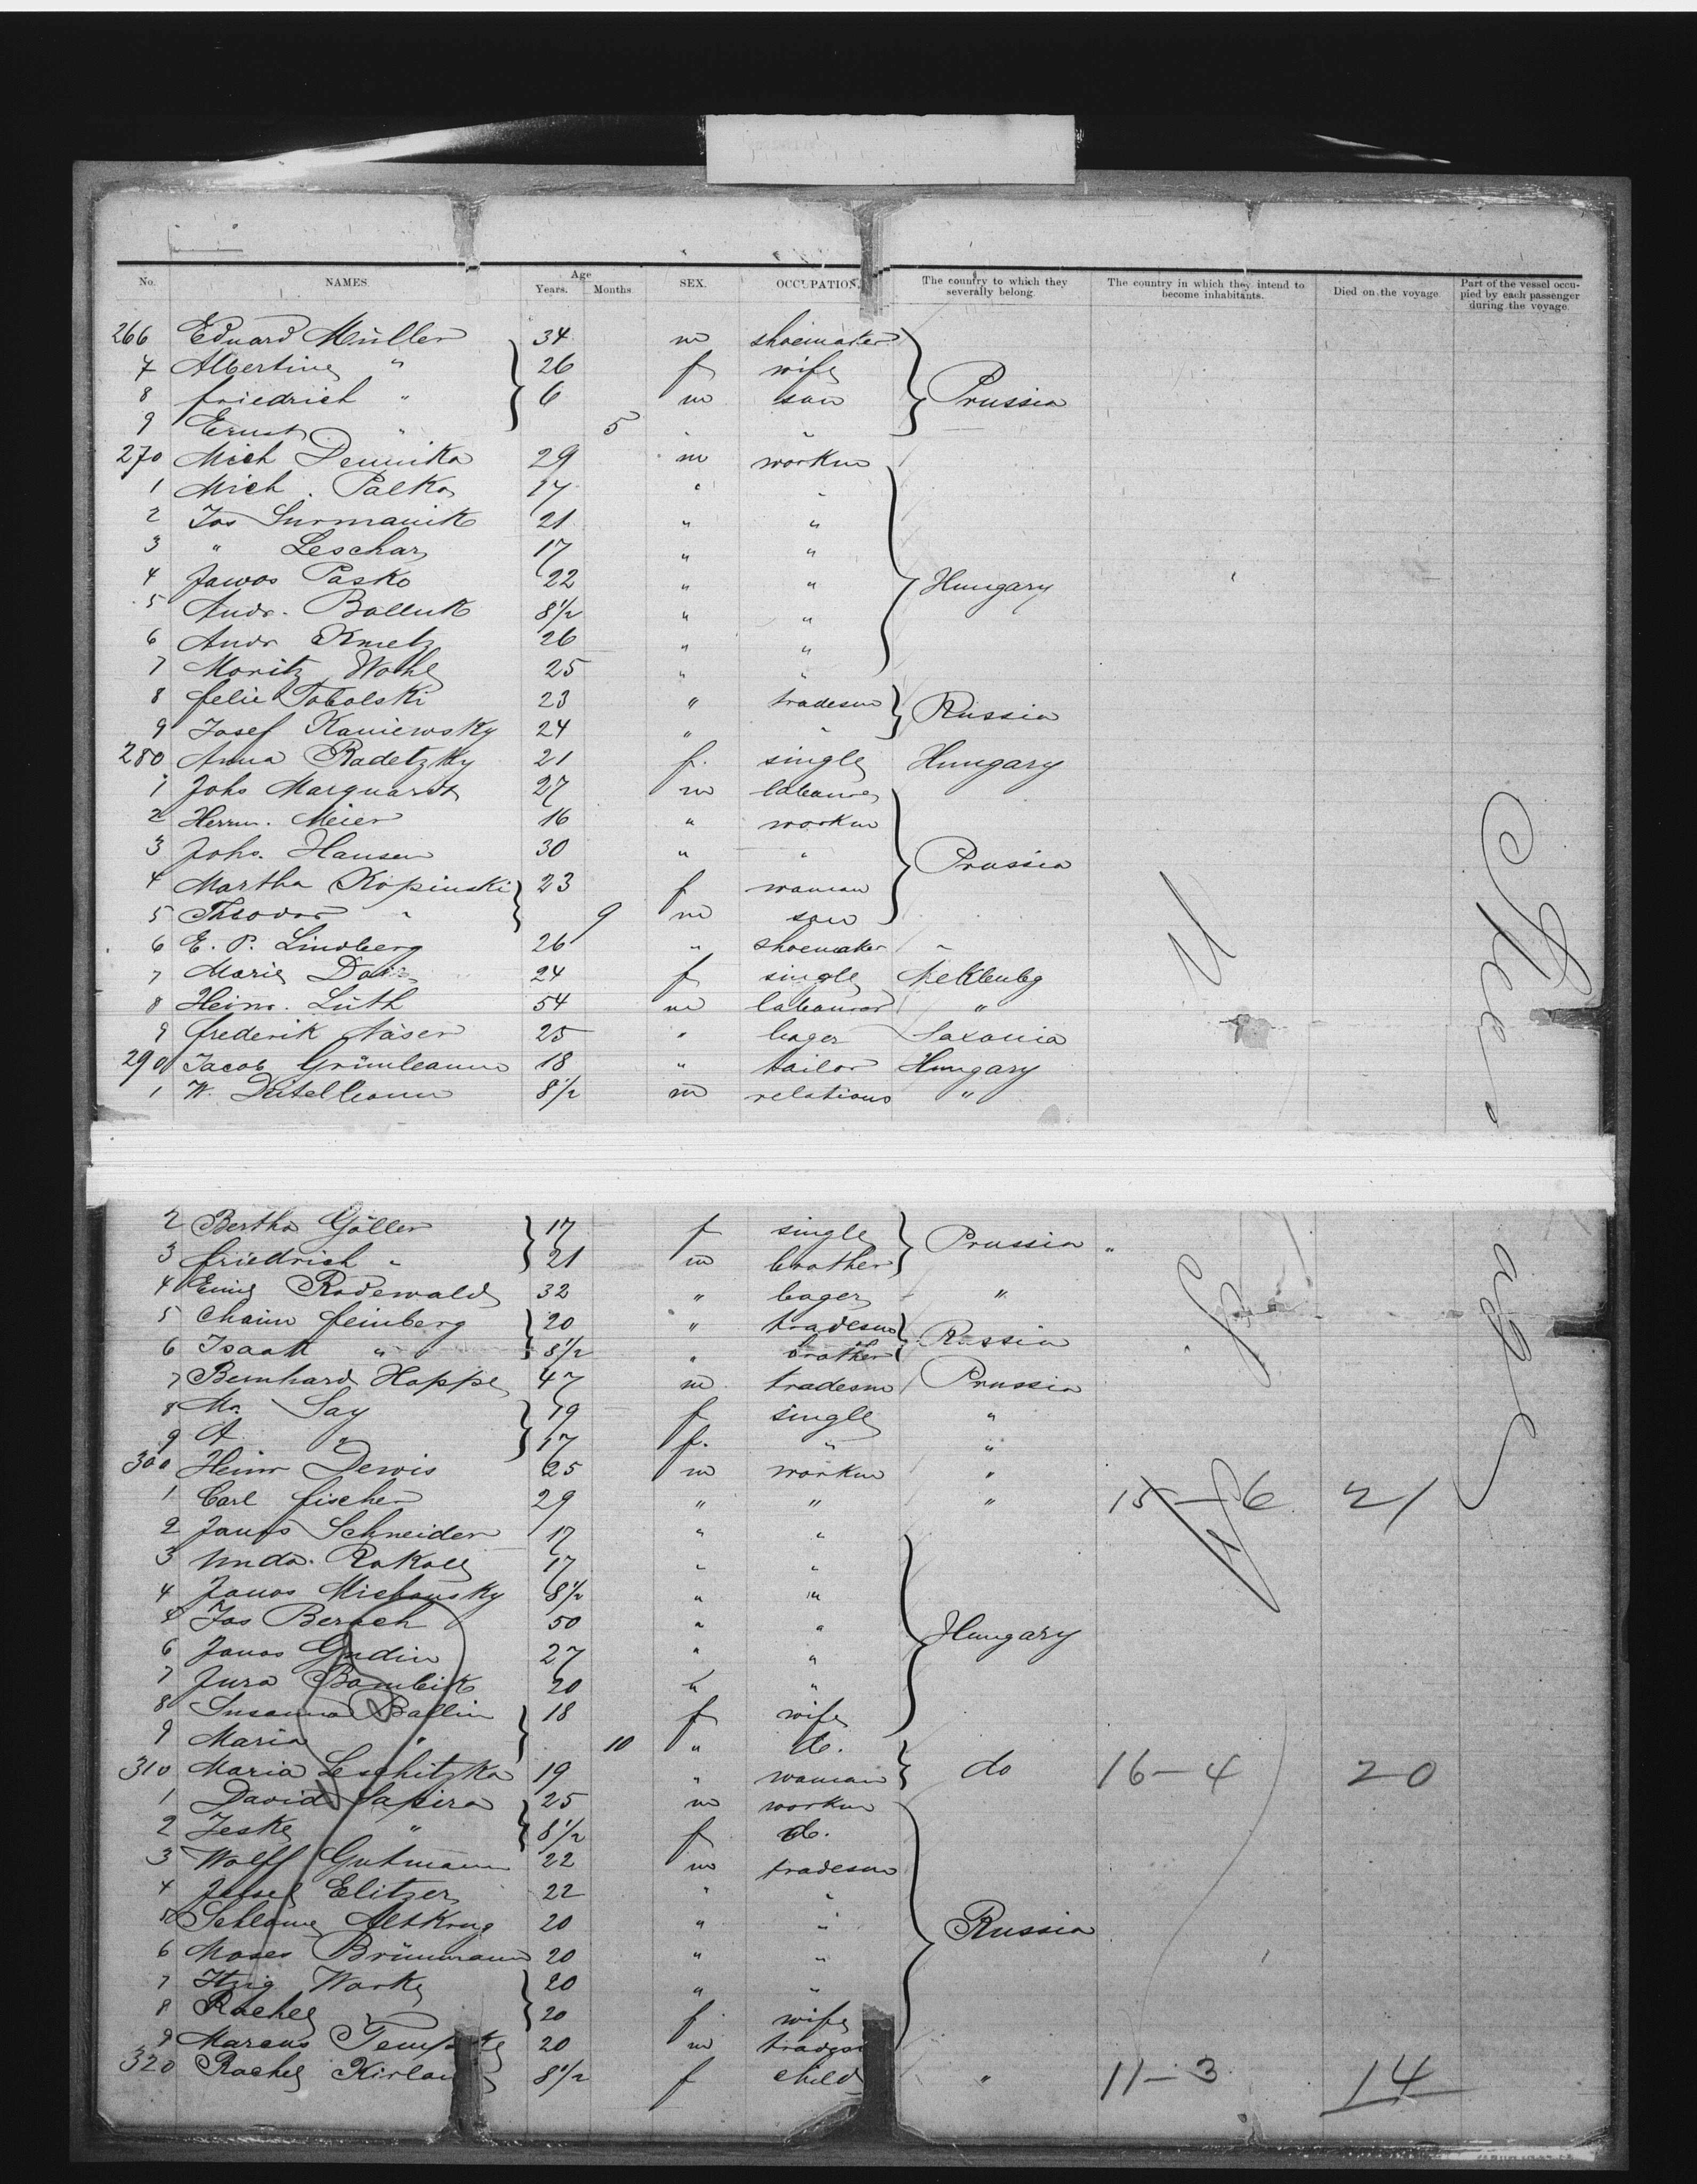 No. NAMES. Age Years. Months. SEX. OCCUPATION. The country to which they severally belong. The country in which they intend to become inhabitants. Died on the voyage. Part of the vessel occupied by each passenger during the voyage.
266 Eduard Müller 34 m shoemaker
7 Albertine " 26 f wife
8 friedrich " 6 m son Prussia
9 Ernst " 5 " "
270 Mich Demnika 29 m workm
1 Mich. Palko 17 " "
2 Jos Surmanik 21 " "
3 " Leschar 17 " "
4 Janos Pasko 22 " " Hungary
5 Andr. Balluk 8½ " "
6 Andr Kmetz 26 " "
7 Moritz Wohl 25 " "
8 felix Tobolski 23 " tradesm Russia
9 Josef Kaniewsky 24 " "
280 Anna Radetzky 21 f. single Hungary
1 Johs Marquardt 27 m labourer
2 Herm. Meier 16 " workm
3 Johs. Hansen 30 " " Prussia
4 Martha Kopinski 23 f woman
5 Theodor " 9 m son
6 E. P. Lindberg 26 " shoemaker "
7 Marie 24 f single Meklenbg
8 Heinr. Lüth 54 m labourer "
9 frederik Näser 25 " Saxonia
290 Jacob Grünleaum 18 " tailor Hungary
1 W. 8½ m relations "
2 Bertha Göller 17 f single Prussia "
3 friedrich " 21 m brother
4 Emil Rodewald 32 " "
5 Chaim feinberg 20 " tradesm Russia
6 Isaak " 8½ " brother
7 Bernhard Hoppe 47 m tradesm Prussia
8 Ma. Say 19 f single "
9 A. " 17 f. " "
300 Heinr Dewis 25 m workm "
1 Carl fischer 29 " " " 15—6 21
2 Janos Schneider 17 " "
3 Rokall 17 " "
4 Janos Michansky 8½ " "
Jos Berach 50 " " Hungary
6 Janos Gudin 27 " "
7 Jura Bambik 20 " "
8 Susanna Ballin 18 f wife
9 Maria " 10 " do.
310 Maria Leschitzka 19 " woman do 16—4 20
1 David Sapira 25 m workm
2 Jeske " 8½ f do.
3 Wolff Gutmann 22 m tradesm
4 Elitzer 22 " "
5 Schlome Altkrug 20 " " Russia
6 Moses Brünmann 20 " "
7 Itzig Warke 20 " "
8 Rachel " 20 f wife
9 Marcus 20 m
320 Rachel 8½ f child " 11—3 14